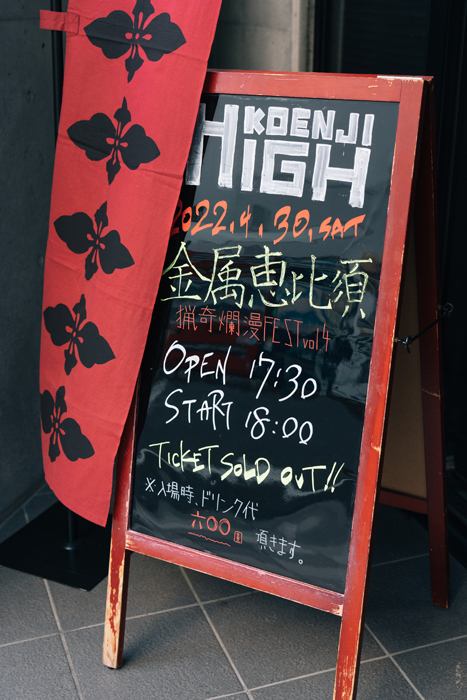 KOENJI
HIGH
2022.4.30.SAT
金属恵比須
猟奇爛漫FESTvol4
OPEN 17:30
START 18:00
TICKET SOLD OUT!!
※入場時、ドリンク代
六〇〇円
頂きます。